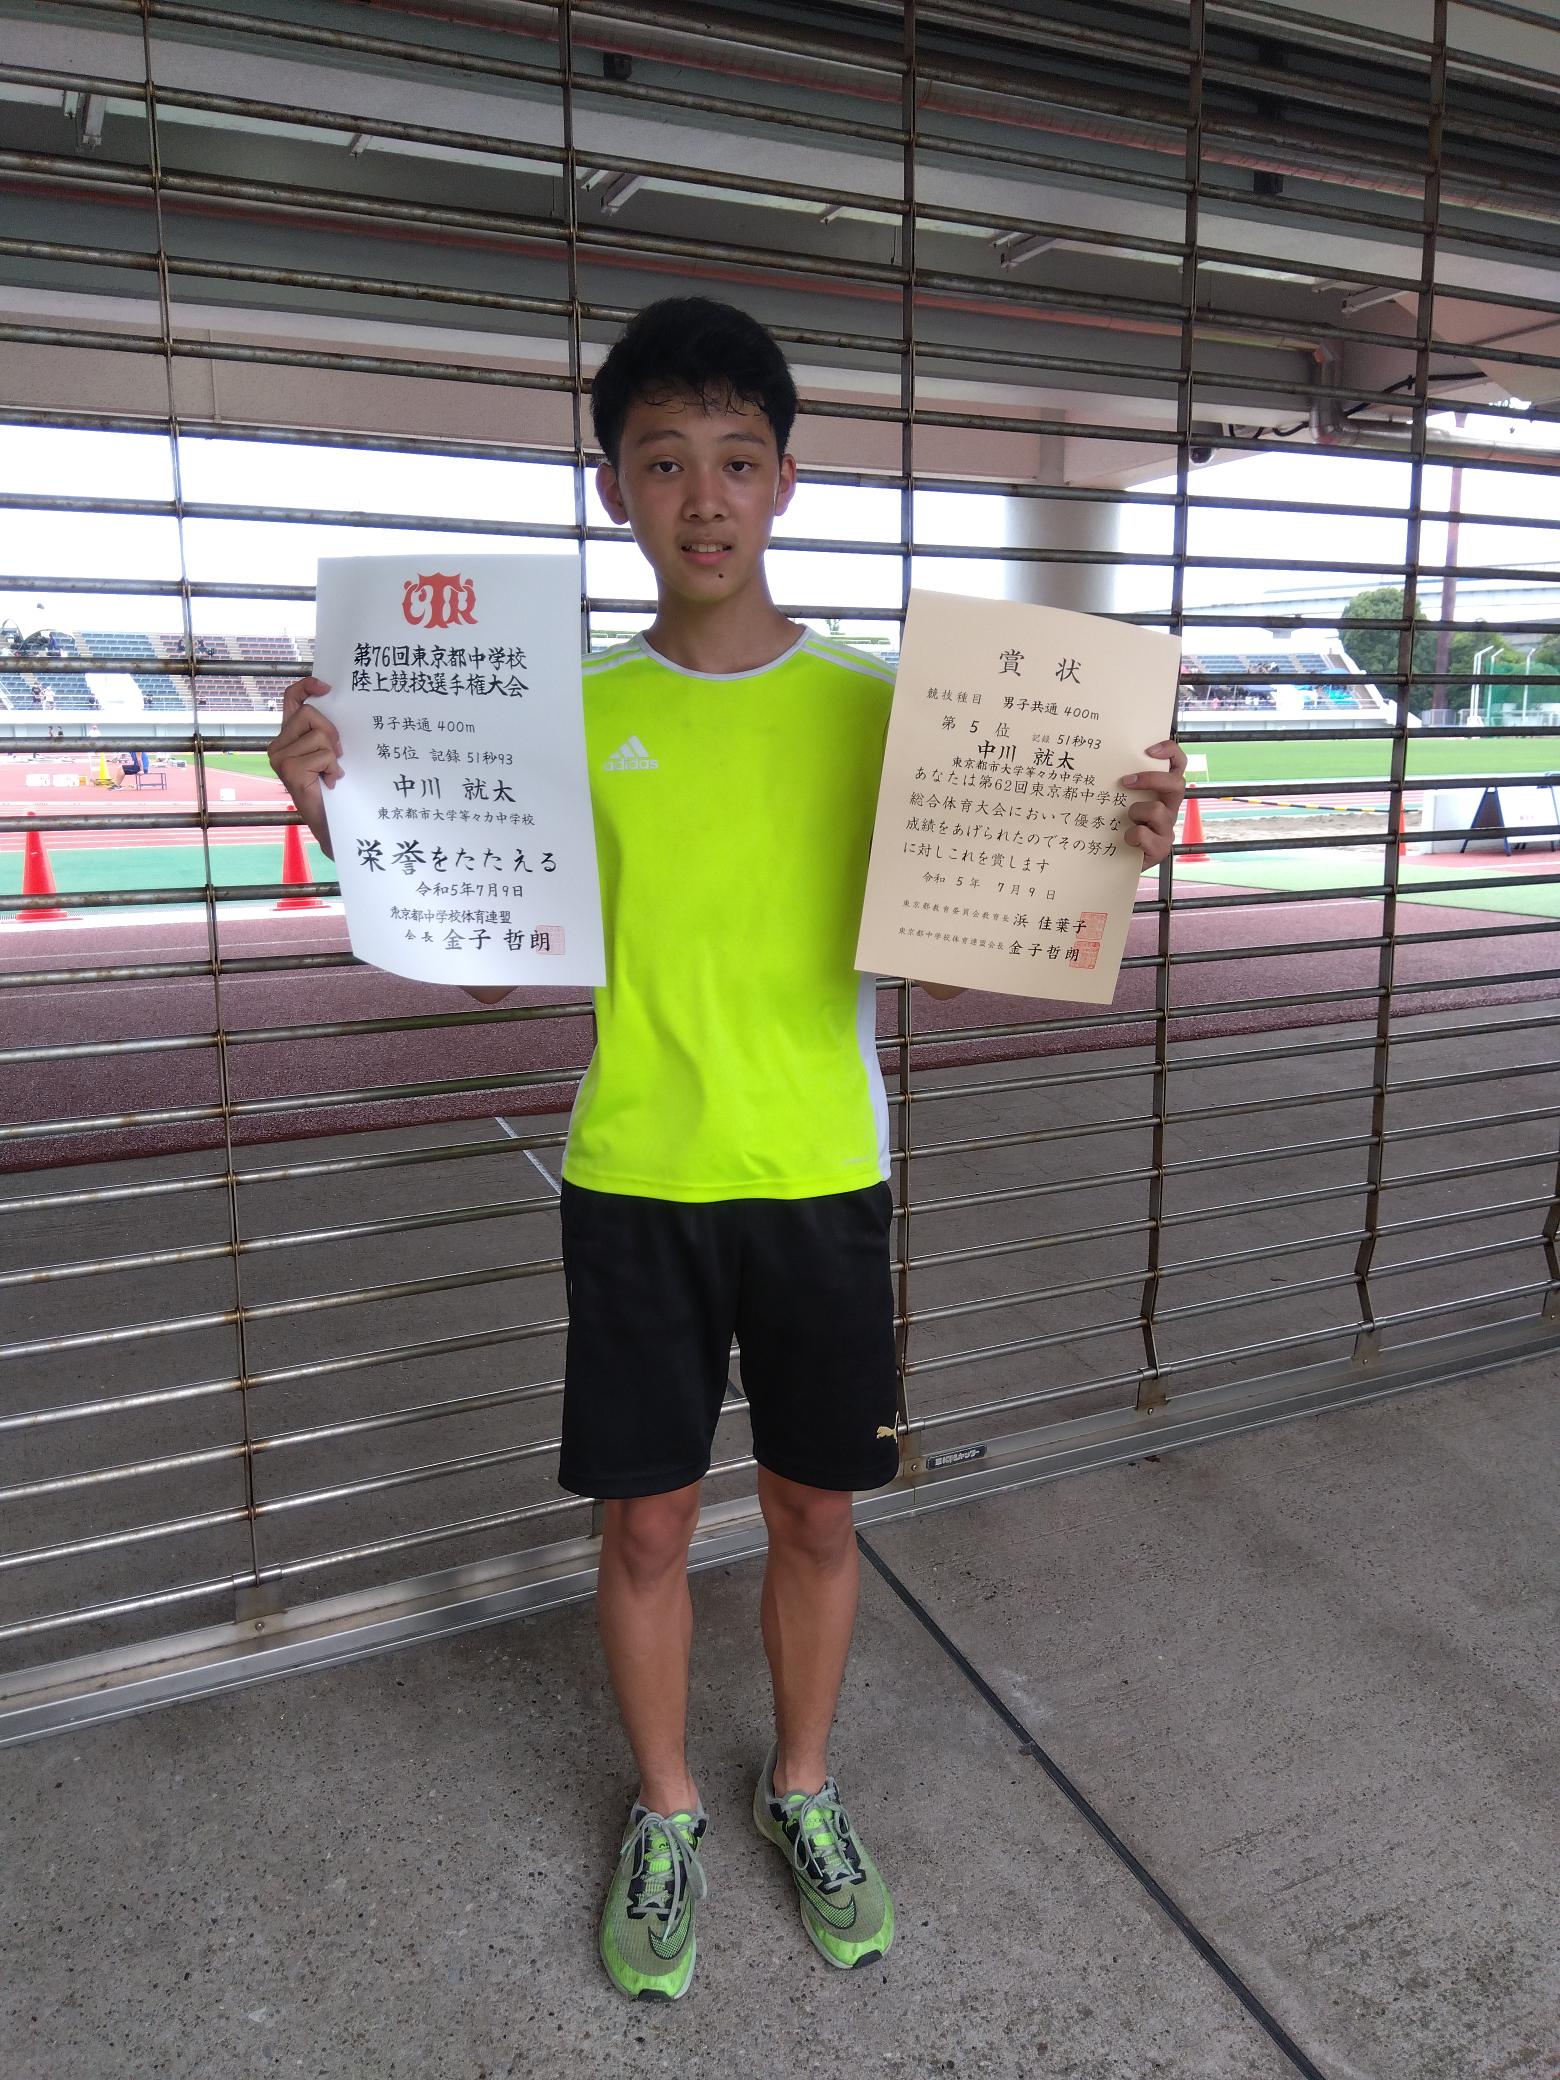 CTR
第76回東京都中学校
陸上競技選手権大会
男子共通 400m
第5位 記録 51秒93
中川 就太
東京都市大学等々力中学校
栄誉をたたえる
令和5年7月9日
東京都中学校体育連盟
会長 金子 哲朗
adidas
賞 状
競技種目 男子共通 400m
第 5 位 記録 51秒93
中川 就太
東京都市大学等々力中学校
あなたは第62回東京都中学校
総合体育大会において優秀な
成績をあげられたのでその努力
に対しこれを賞します
令和 5年 7月9日
東京都教育委員会教育長 浜 佳葉子
東京都中学校体育連盟会長 金子哲朗